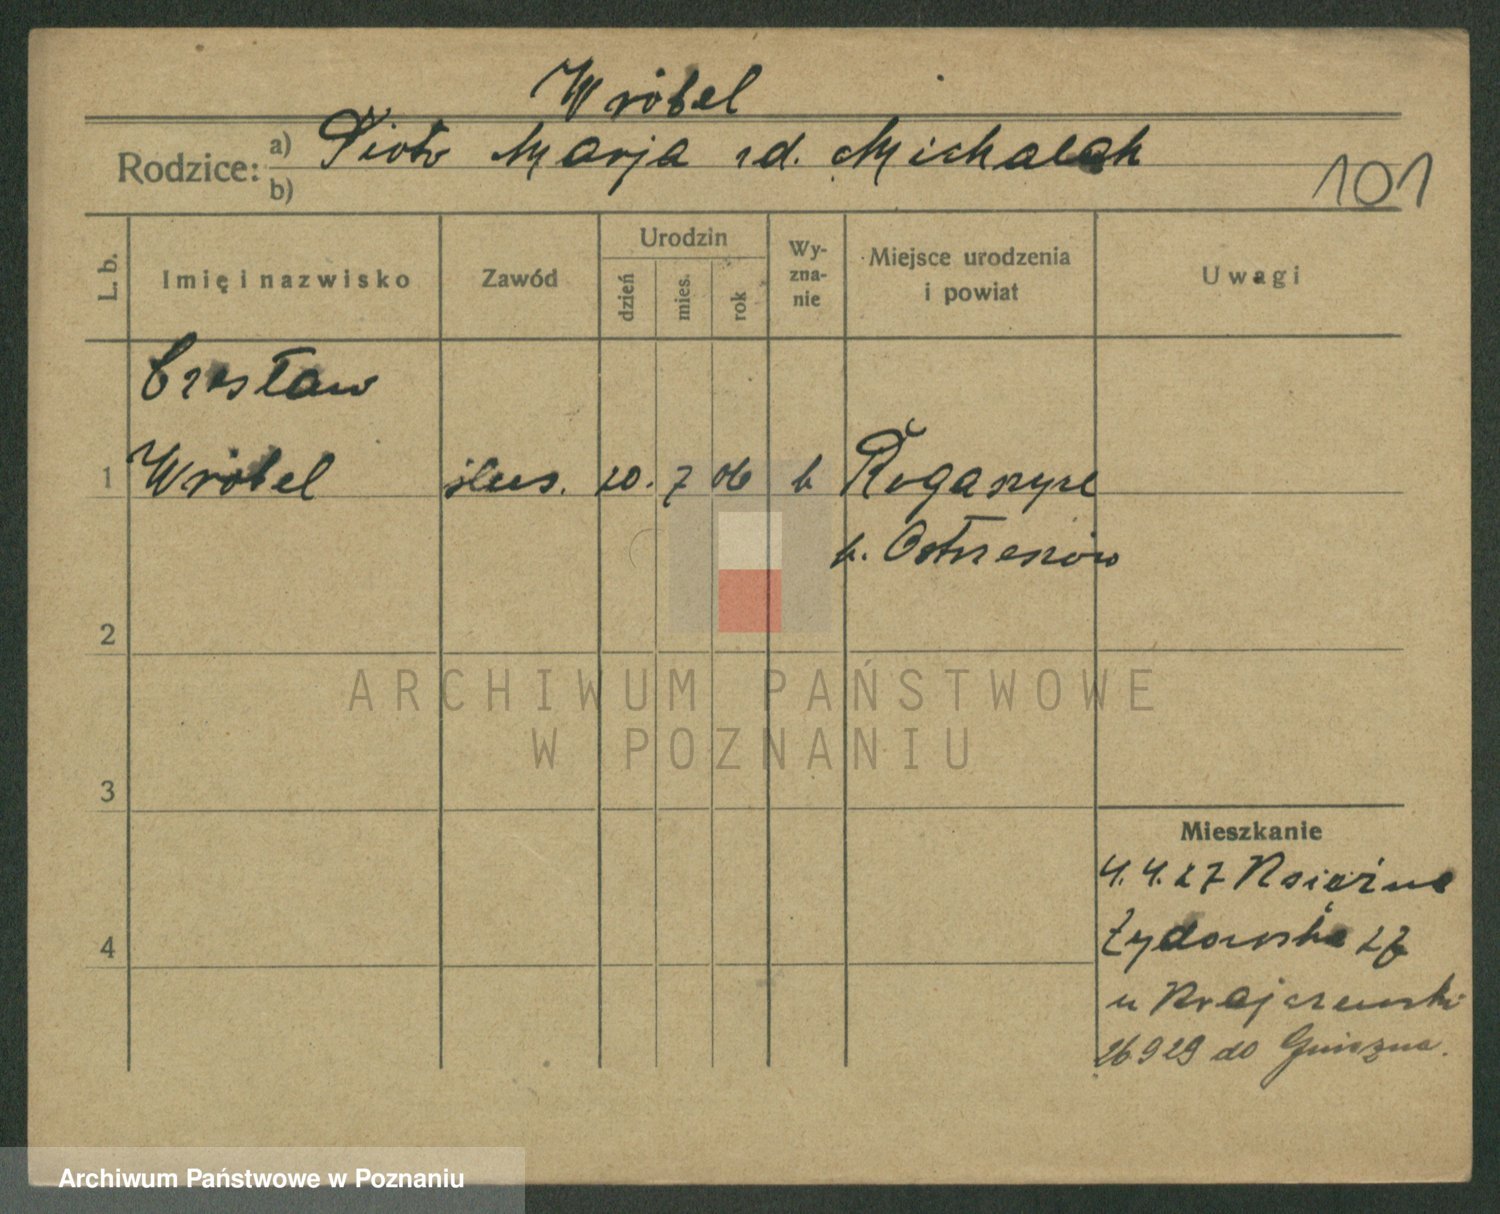 Wróbel
Rodzice: a) Piotr Marja zd. Michalak
b)
101
L. b.
Imię i nazwisko
Zawód
Urodzin
dzień
mies.
rok
Wy-
zna-
nie
Miejsce urodzenia
i powiat
Uwagi
Czesław
1 Wróbel ślus. 10. 7 06 k Rogaszyce
k. Ostrzeszów
2
3
4
Mieszkanie
4.4.27 Książno
Żydowska 27
u Krajczewski
26 9 29 do Gniezna.
ARCHIWUM PAŃSTWOWE
W POZNANIU
Archiwum Państwowe w Poznaniu